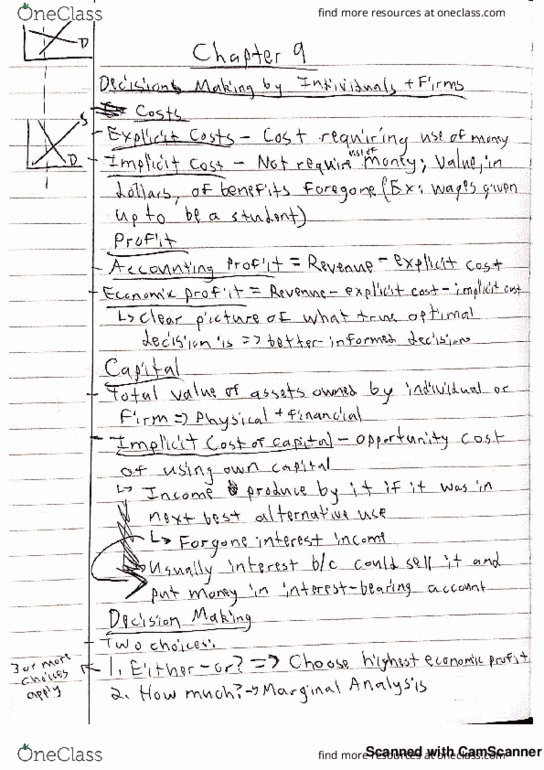 OneClass
find more resources at oneclass.com
D
Chapter 9
Decision Making by Individuals + Firms
Costs
S
D
Explicit Costs - Cost requiring use of money
Implicit Cost - Not require use of money; Value, in
dollars, of benefits foregone (Ex: wages given
up to be a student)
Profit
Accounting Profit = Revenue - explicit cost
Economic profit = Revenue - explicit cost - implicit cost
↳ clear picture of what true optimal
decision is => better-informed decisions
Capital
- Total value of assets owned by individual or
Firm => Physical + financial
- Implicit Cost of capital - opportunity cost
of using own capital
↳ Income produce by it if it was in
next best alternative use
↳ Forgone interest income
Usually interest b/c could sell it and
put money in interest-bearing account
Decision Making
- Two choices:
3 or more choices apply
1. Either-or? => Choose highest economic profit
2. How much? → Marginal Analysis
OneClass
find more resources at oneclass.com
Scanned with CamScanner